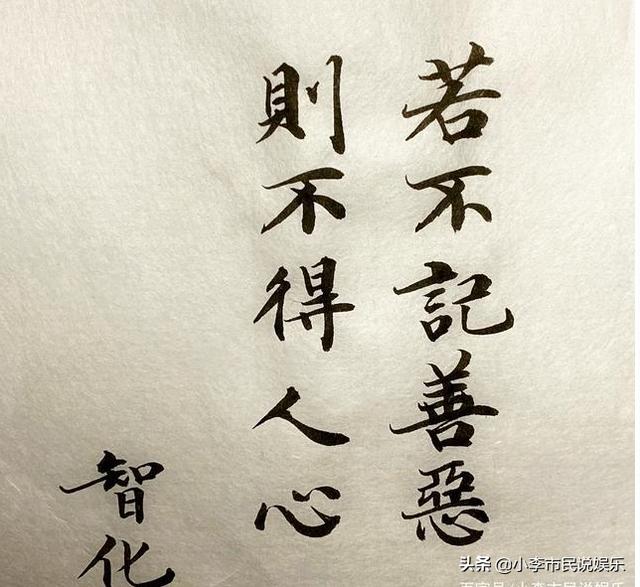 若不記善惡
則不得人心
智化
头条 @小李市民说娱乐